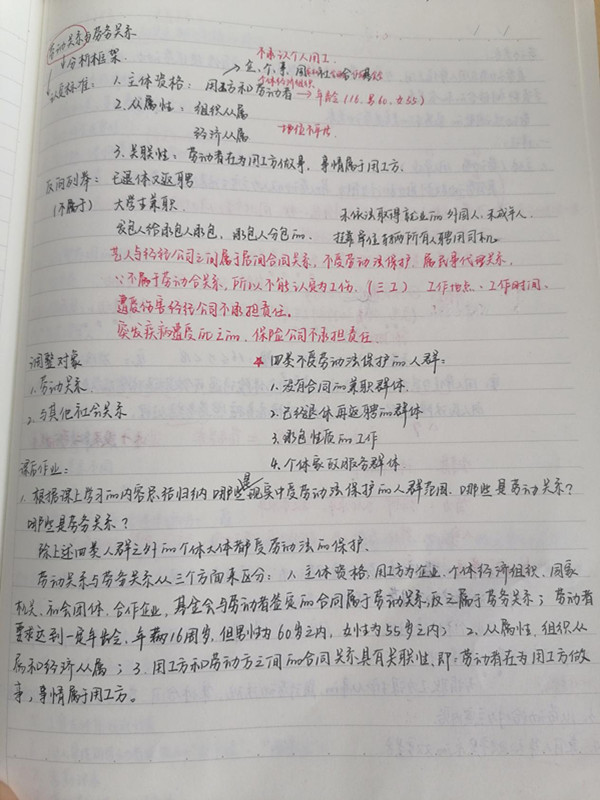 劳动关系与劳务关系
分析框架
不承认个人用工
认定标准: 1.主体资格: 用工方和劳动者 → 年龄(16.男60.女55)
个体经济组织
2.从属性: 组织从属
经济从属 地位不平等
3.关联性: 劳动者在为用工方做事, 事情属于用工方.
反向列举: 已退休又返聘
(不属于) 大学生兼职. 未依法取得就业的外国人.未成年人.
发包人给承包人承包, 承包人分包的. 挂靠单位车辆所有人聘用司机.
艺人与经纪公司之间属于居间合同关系,不受劳动法保护.属民事代理关系.
∵不属于劳动合关系, 所以不能认定为工伤. (三工) 工作地点、工作时间、
遭受伤害经纪公司不承担责任.
突发疾病遭受死亡的, 保险公司不承担责任
调整对象 ★四类不受劳动法保护的人群:
1.劳动关系 1.没有合同的兼职群体.
2.与其他社会关系 2.已经退休再返聘的群体
3.承包性质的工作
课后作业: 4.个体家政服务群体
1.根据课上学习的内容总结归纳哪些是现实中受劳动法保护的人群范围.哪些是劳动关系?
哪些是劳务关系?
除上述四类人群之外的个体大体都受劳动法的保护.
劳动关系与劳务关系从三个方面来区分: 1.主体资格,用工方为企业.个体经济组织.国家
机关.社会团体.合作企业,基金会与劳动者签定的合同属于劳动关系,反之属于劳务关系; 劳动者
要求达到一定年龄,年满16周岁,但男性为60岁之内,女性为55岁之内; 2.从属性,组织从
属和经济从属; 3.用工方和劳动方之间的合同关系具有关联性,即:劳动者在为用工方做
事,事情属于用工方。